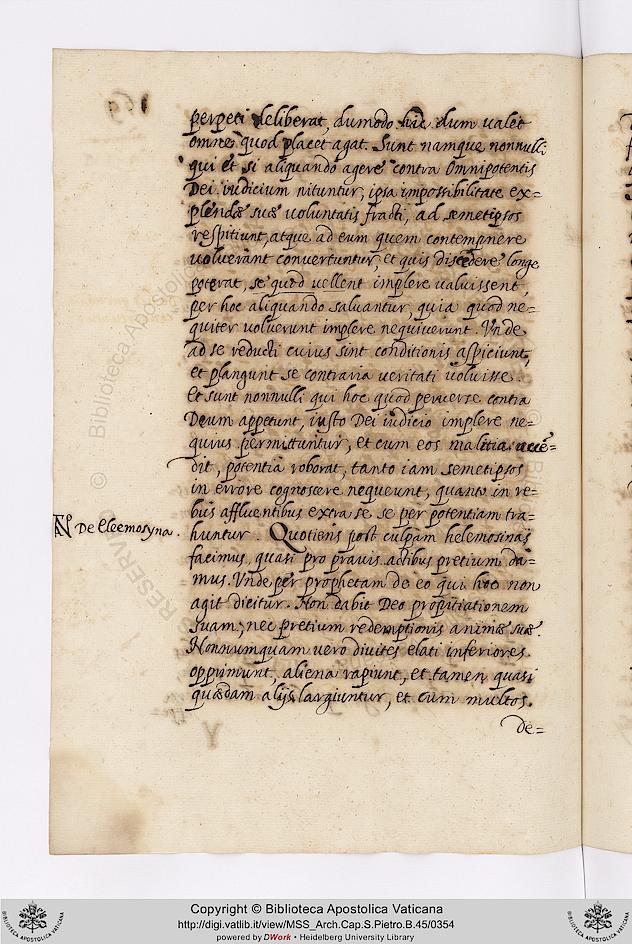 perpeti deliberat, dumodo hic dum valet
omne quod placet agat. Sunt namque nonnulli
qui et si aliquando agere contra Omnipotentis
Dei iudicium nituntur, ipsa impossibilitate ex=
plendæ suæ voluntatis fracti, ad semetipsos
respitiunt, atque ad eum quem contempnere
voluerant convertuntur, et quis discedere longe
poterat, se quod vellent implere valuissent,
per hoc aliquando salvantur, quia quod ne=
quiter voluerunt implere nequiverunt. Unde
ad se reducti cuius sint conditionis aspiciunt,
et plangunt se contraria veritati voluisse.
Et sunt nonnulli qui hoc quod perverse contra
Deum appetunt, iusto Dei iudicio implere ne=
quius permittuntur, et cum eos malitia accē=
dit, potentia roborat, tanto iam semetipsos
in errore cognoscere nequeunt, quanto in re=
bus affluentibus extra se se per potentiam tra=
De Eleemosyna.
huntur. Quotiens post culpam helemosinas
facimus, quasi pro pravis actibus pretium da=
mus. Unde per prophetam de eo qui hoc non
agit dicitur. Non dabit Deo propitiationem
suam, nec pretium redemptionis animæ suæ.
Nonnumquam vero divites elati inferiores
opprimunt, aliena rapiunt, et tamen quasi
quædam alijs largiuntur, et cum multos.
de=
RESERVED © Biblioteca Apostolica Vaticana
Copyright © Biblioteca Apostolica Vaticana
http://digi.vatlib.it/view/MSS_Arch.Cap.S.Pietro.B.45/0354
powered by DWork • Heidelberg University Library